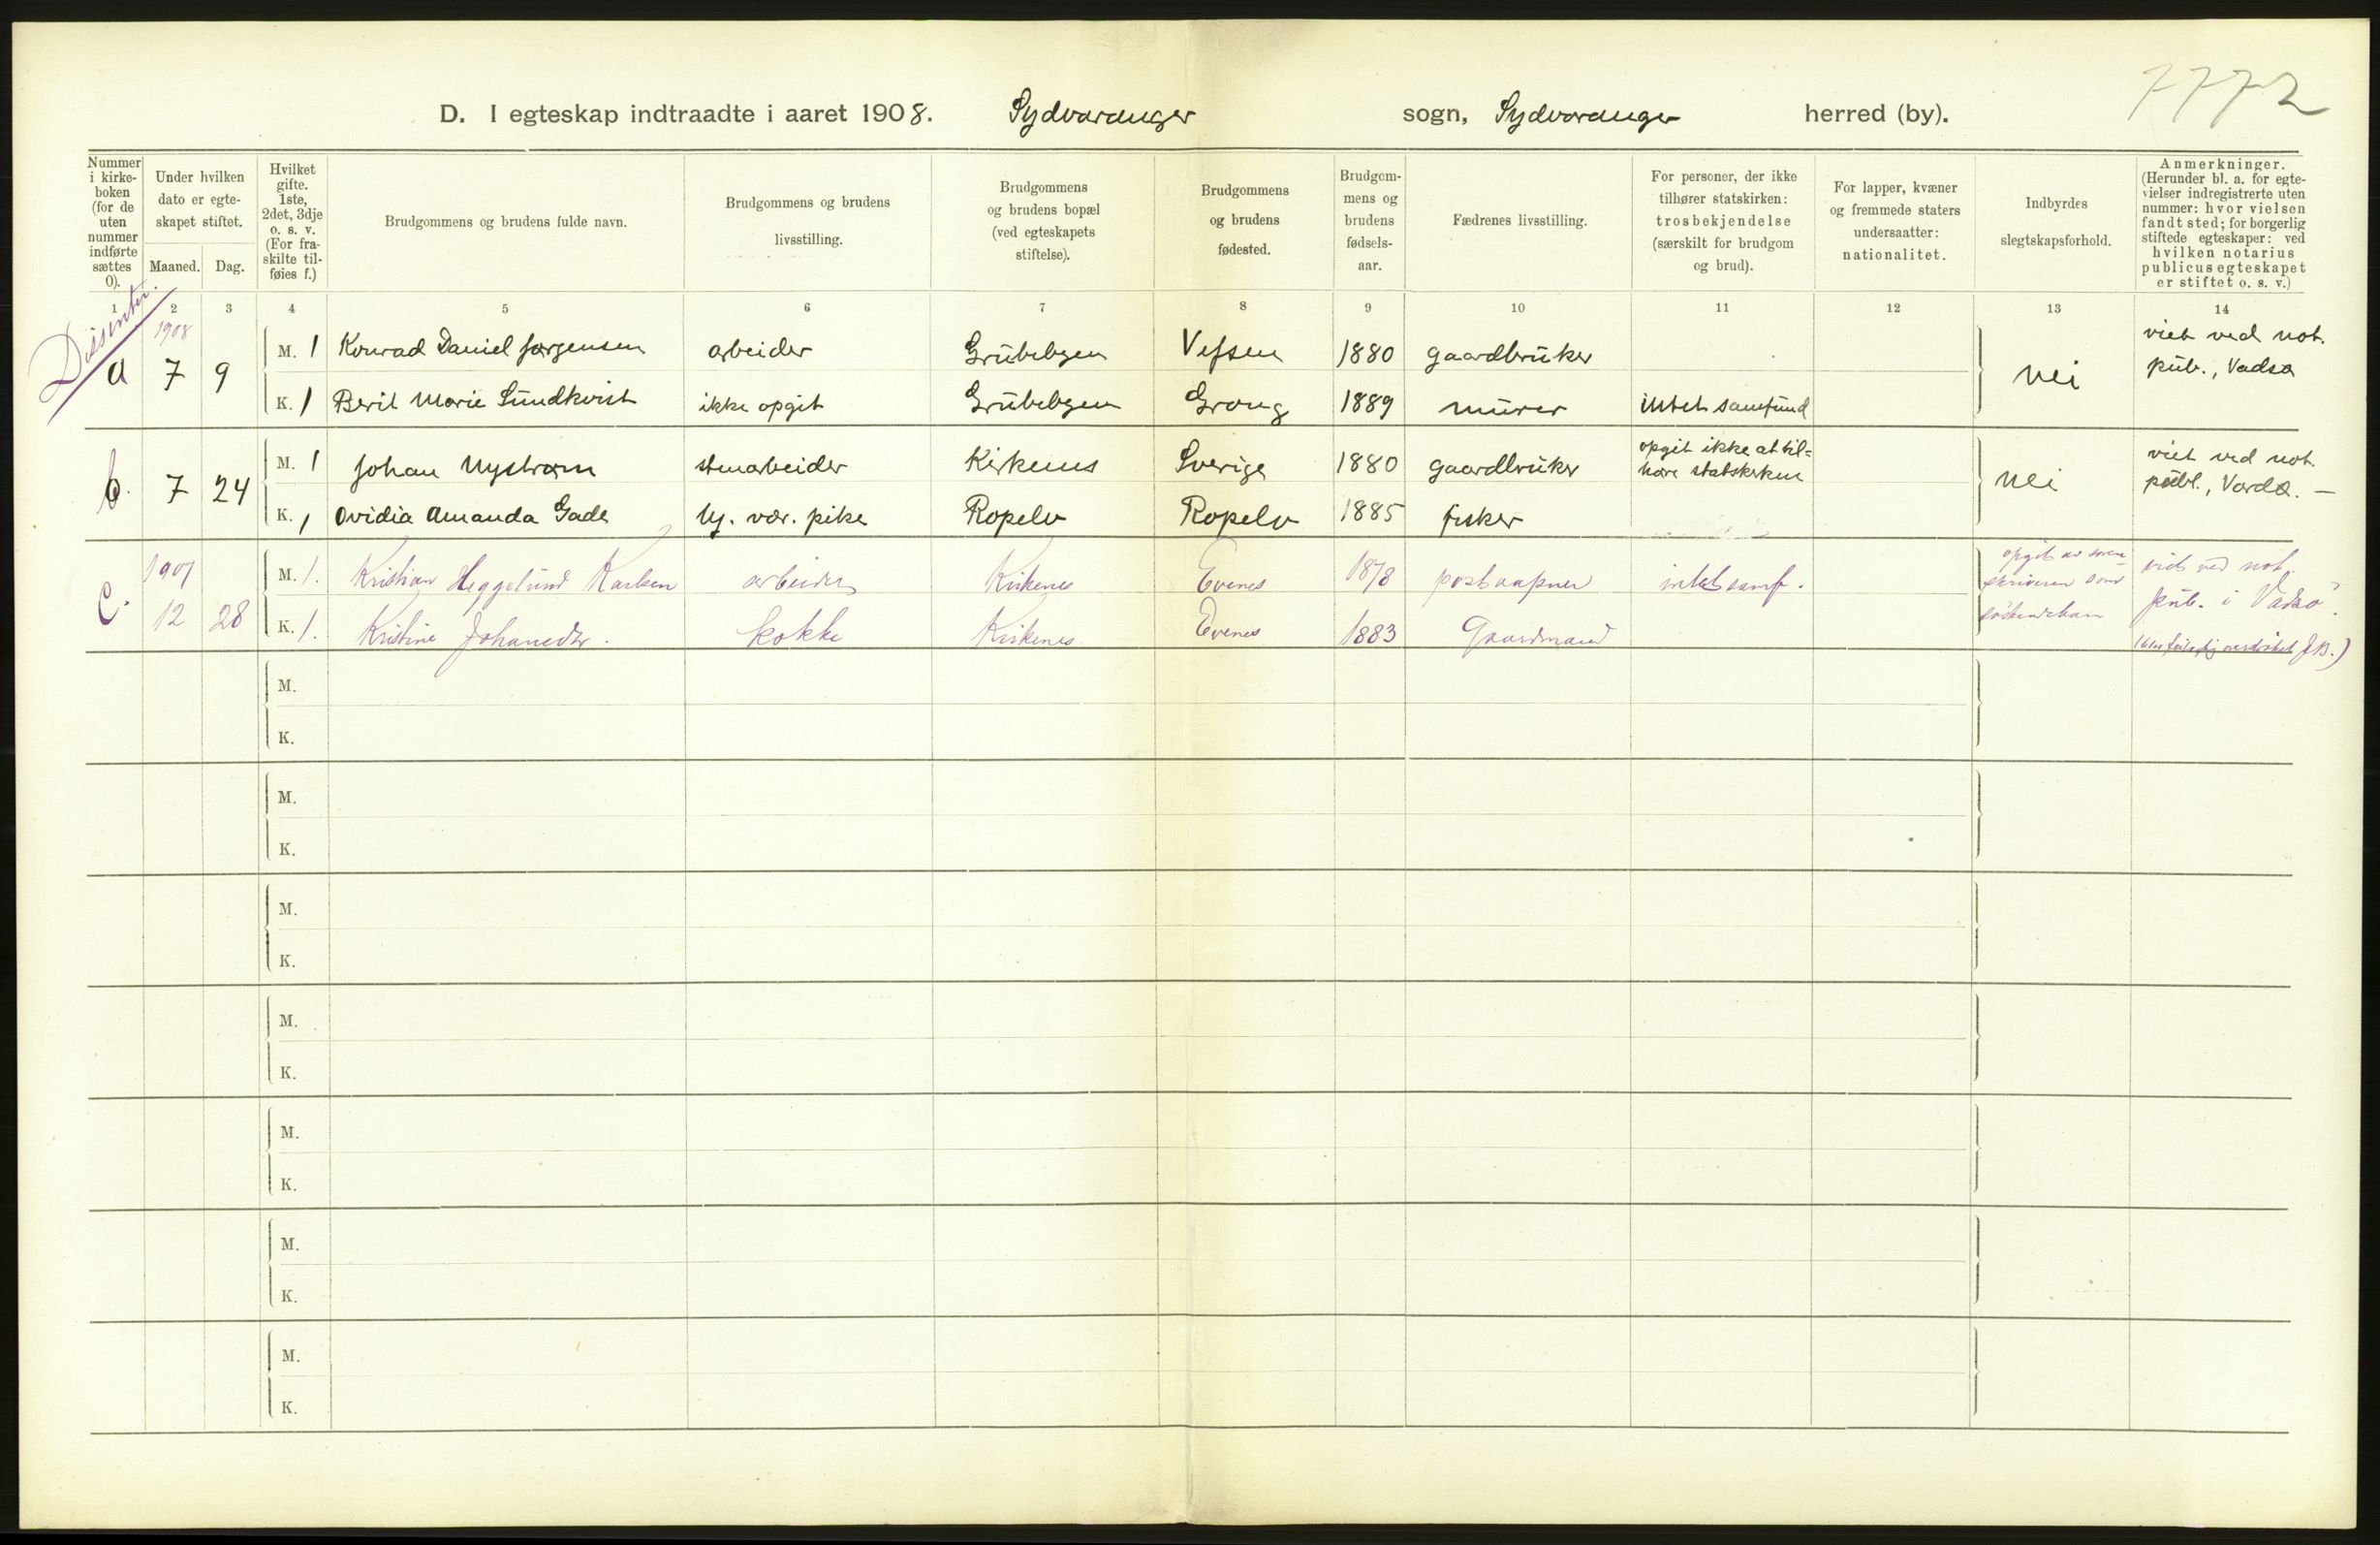 7772
D. I egteskap indtraadte i aaret 1908. Sydvaranger sogn, Sydvaranger herred (by).
Nummer i kirke- boken (for de uten nummer indførte sættes 0).
Under hvilken dato er egte- skapet stiftet.
Maaned. Dag.
Hvilket gifte. 1ste, 2det, 3dje o. s. v. (For fra- skilte til- føies f.)
Brudgommens og brudens fulde navn.
Brudgommens og brudens livsstilling.
Brudgommens og brudens bopæl (ved egteskapets stiftelse).
Brudgommens og brudens fødested.
Brudgom- mens og brudens fødsels- aar.
Fædrenes livsstilling.
For personer, der ikke tilhører statskirken: trosbekjendelse (særskilt for brudgom og brud).
For lapper, kvæner og fremmede staters undersaatter: nationalitet.
Indbyrdes slegtskapsforhold.
Anmerkninger. (Herunder bl. a. for egte- vielser indregistrerte uten nummer: hvor vielsen fandt sted; for borgerlig stiftede egteskaper: ved hvilken notarius publicus egteskapet er stiftet o. s. v.)
1 2 3 4 5 6 7 8 9 10 11 12 13 14
Dissenter.
1908
a 7 9
M. 1 Konrad Daniel Jørgensen arbeider Grubebyen Vefsen 1880 gaardbruker
K. 1 Beril Marie Sundkvist ikke opgit Grubebyen Grong 1889 murer intet samfund
nei
viet ved not. pub., Vadsø
b. 7 24
M. 1 Johan Nystrøm stenarbeider Kirkenes Sverige 1880 gaardbruker opgit ikke at til= høre statskirken
K. 1 Ovidia Amanda Gade hj. vær. pike Ropelv Ropelv 1885 fisker
nei
viet ved not. publ., Vardø. —
1907
c. 12 28
M. 1. Kristian Heggelund Karlsen arbeider Kirkenes Evenes 1878 postaapner intet samf.
K. 1. Kristine Johansdtr. kokke Kirkenes Evenes 1883 Gaardmand
opgit av soren- skriveren som søskendebarn
viet ved not. pub. i Vadsø.
J.B.)
M.
K.
M.
K.
M.
K.
M.
K.
M.
K.
M.
K.
M.
K.